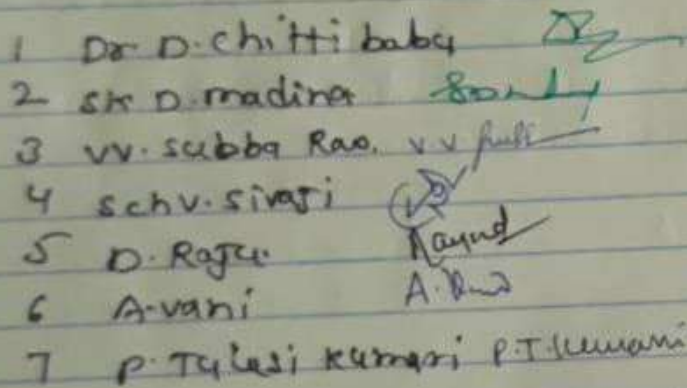 1 Dr D. chitti babu
2 SK D. madina
3 VV. subba Rao. v v
4 schv. sivaji
5 D. Raju.
6 A. vani A.
7 P. Tulasi kumari P.T. kumari